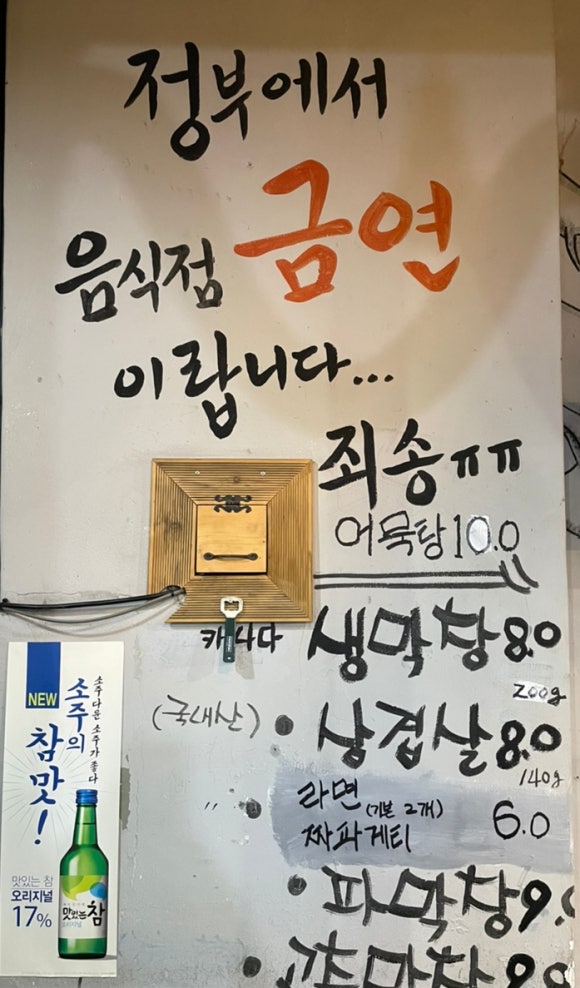 정부에서
음식점 금연
이랍니다...
죄송ㅠㅠ
어묵탕 10.0
캐나다 생막창 8.0
200g
(국내산) • 삼겹살 8.0
140g
라면 (기본 2개) 6.0
짜파게티
• 파막창 9.
막창 8.0
NEW
소주의
참맛!
소주다운 소주가 좋다
맛있는 참
오리지널
17%
맛있는참